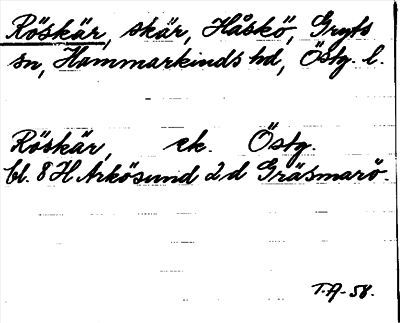 Röskär, skär, Håskö, Gryts
sn, Hammarkinds hd, Östg. l.
Röskär, ek. Östg.
bl. 8 H Arkösund 2 d Gräsmarö.
T.A-58.